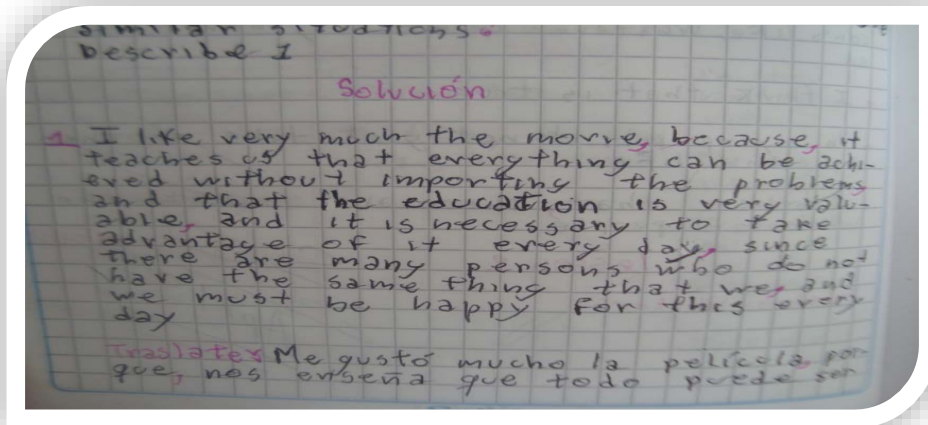 similar situations.
Describe I
Solución
1 I like very much the movie, because, it
teaches us that everything can be achi-
eved without importing the problems
and that the education is very valu-
able, and it is necessary to take
advantage of it every day, since
there are many persons who do not
have the same thing that we, and
we must be happy for this every
day
Traslater Me gustó mucho la película, por-
que, nos enseña que todo puede ser